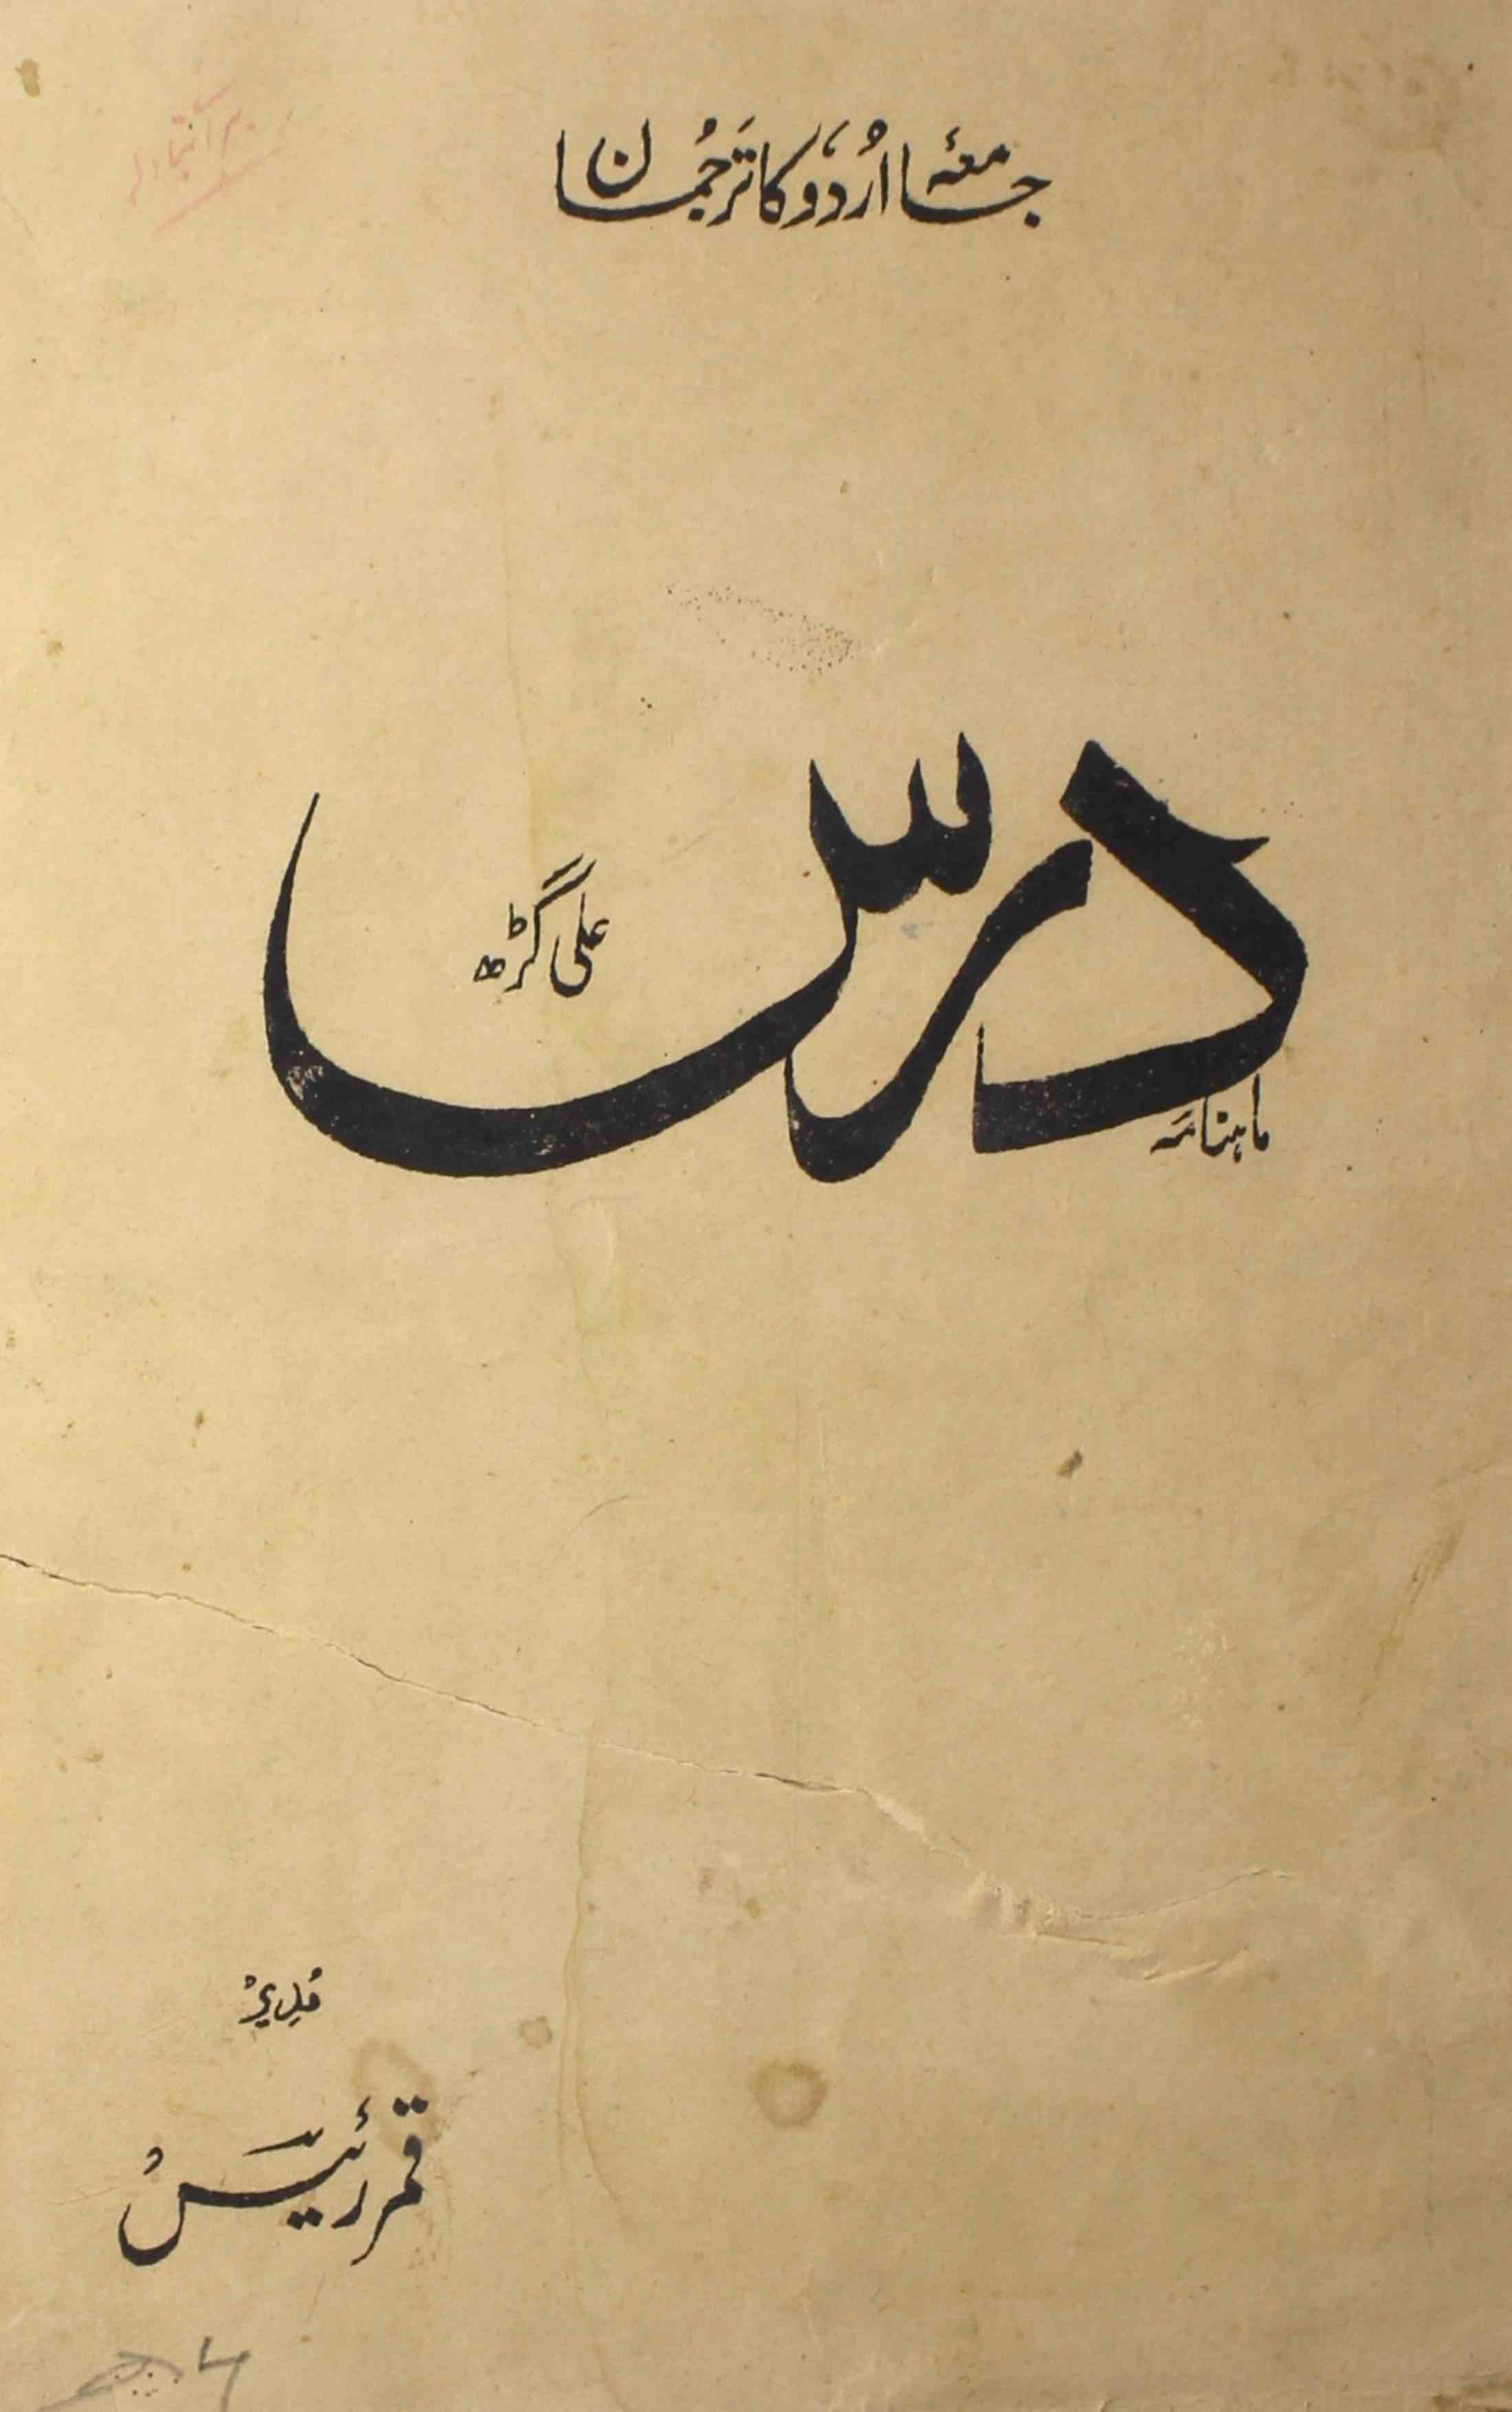 جامعہ اردو کا ترجمان
برائے تبادلہ
ماہنامہ
درس
علی گڑھ
مدیر
قمر رئیس